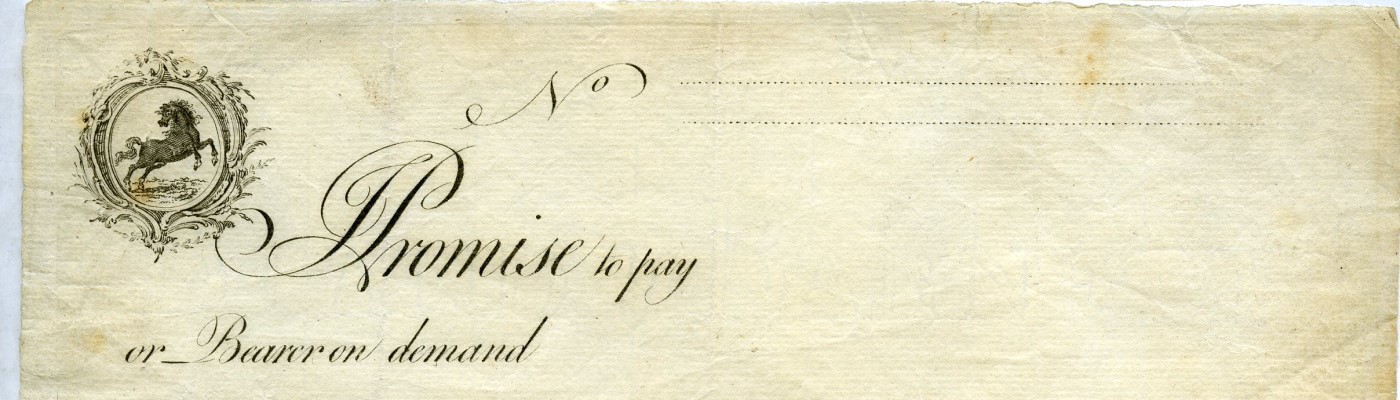 No
I Promise to pay
or Bearer on demand